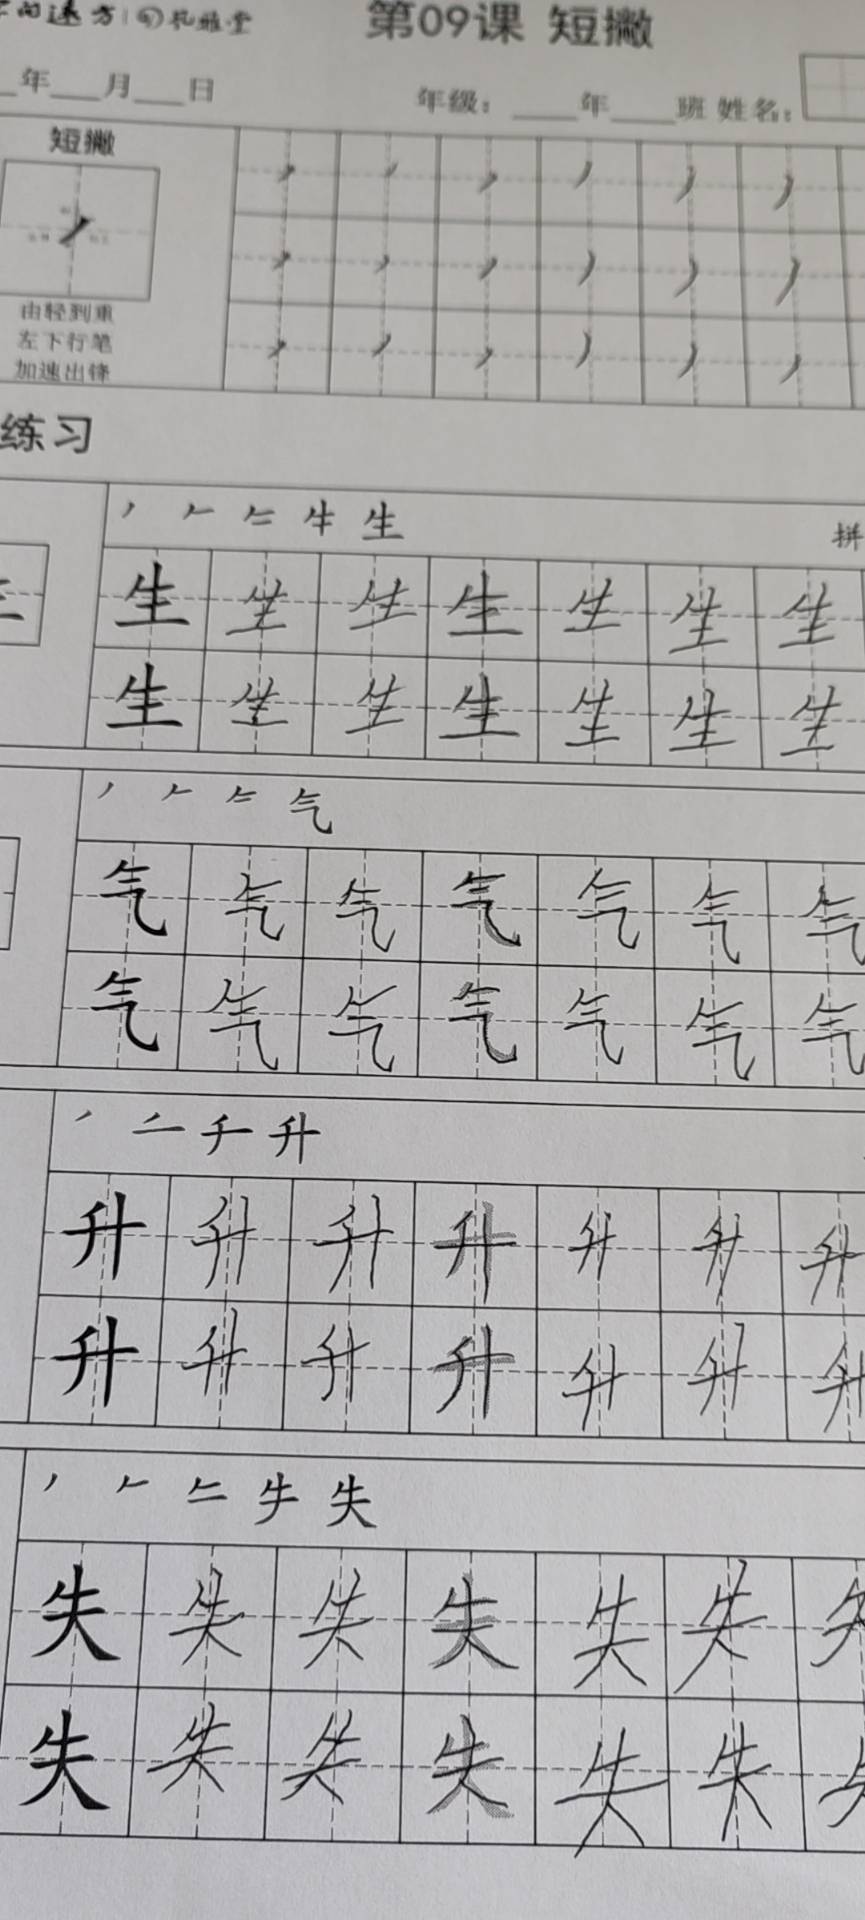 第09课 短撇
年___月___日 年级：____年____班 姓名：
短撇
由轻到重
左下行笔
加速出锋
练习
生
拼
生 生 生 生 生 生 生
生 生 生 生 生 生 生
气
气 气 气 气 气 气 气
气 气 气 气 气 气 气
升
升 升 升 升 升 升 升
升 升 升 升 升 升 升
失
失 失 失 失 失 失
失 失 失 失 失 失